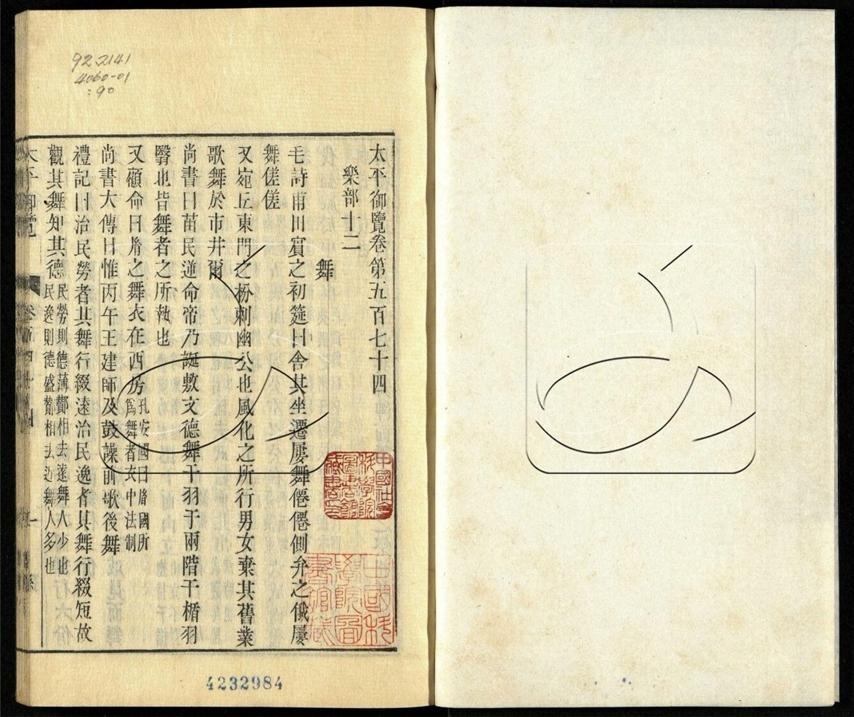 太平御覽卷第五百七十四
樂部十二
舞
毛詩甫田賓之初筵曰舍其坐遷屢舞僊僊側弁之俄屢
舞傞傞
又宛丘東門之枌刺幽公也風化之所行男女棄其舊業
歌舞於市井爾
尚書曰苗民逆命帝乃誕敷文德舞干羽于兩階干楯羽
翳也皆舞者之所執也
又顧命曰胤之舞衣在西房孔安國曰胤國所
爲舞者衣中法制
尚書大傳曰惟丙午王建師及鼓譟前歌後舞
禮記曰治民勞者其舞行綴遠治民逸者其舞行綴短故
觀其舞知其德民勞則德薄酇相去遠舞人少也
民逸則德盛酇相去近舞人多也
92.2141
4060-01
:90
4232984